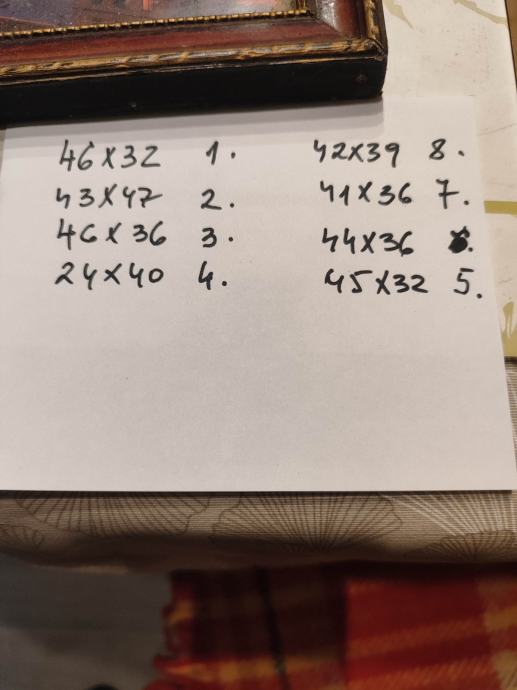 46x32 1.
43x47 2.
46x36 3.
24x40 4.
42x39 8.
41x36 7.
44x36 6.
45x32 5.